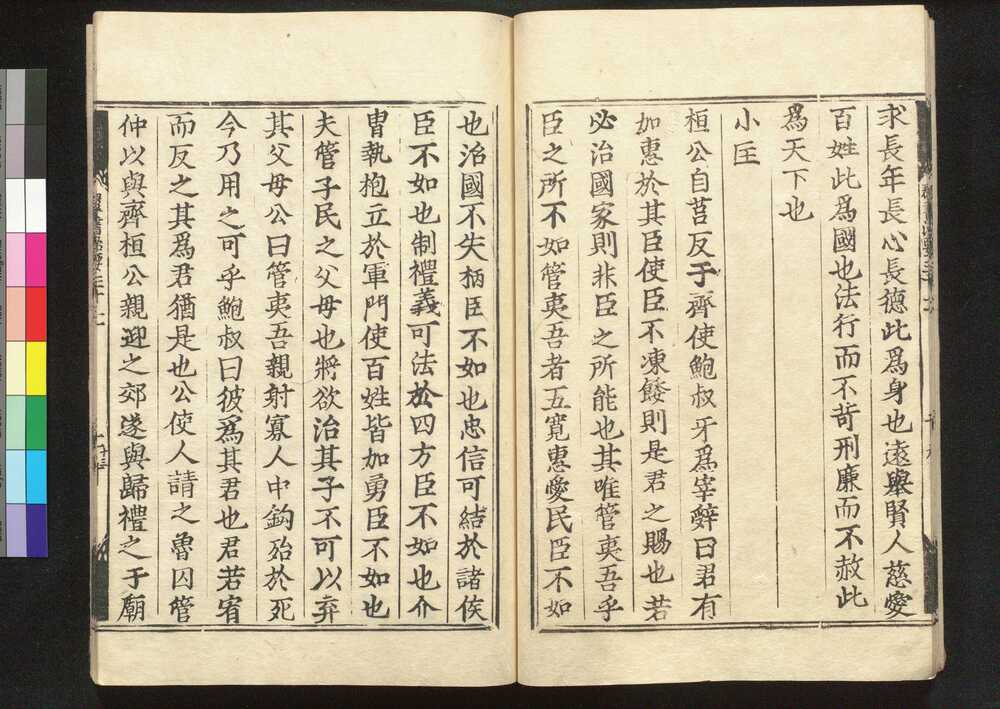 求長年長心長德此爲身也遠舉賢人慈愛
百姓此爲國也法行而不苛刑廉而不赦此
爲天下也
小匡
桓公自莒反于齊使鮑叔牙爲宰辭曰君有
加惠於其臣使臣不凍餒則是君之賜也若
必治國家則非臣之所能也其唯管夷吾乎
臣之所不如管夷吾者五寬惠愛民臣不如
也治國不失柄臣不如也忠信可結於諸侯
臣不如也制禮義可法於四方臣不如也介
胄執抱立於軍門使百姓皆加勇臣不如也
夫管子民之父母也將欲治其子不可以弃
其父母公曰管夷吾親射寡人中鈎殆於死
今乃用之可乎鮑叔曰彼爲其君也君若宥
而反之其爲君猶是也公使人請之魯囚管
仲以與齊桓公親迎之郊遂與歸禮之于廟